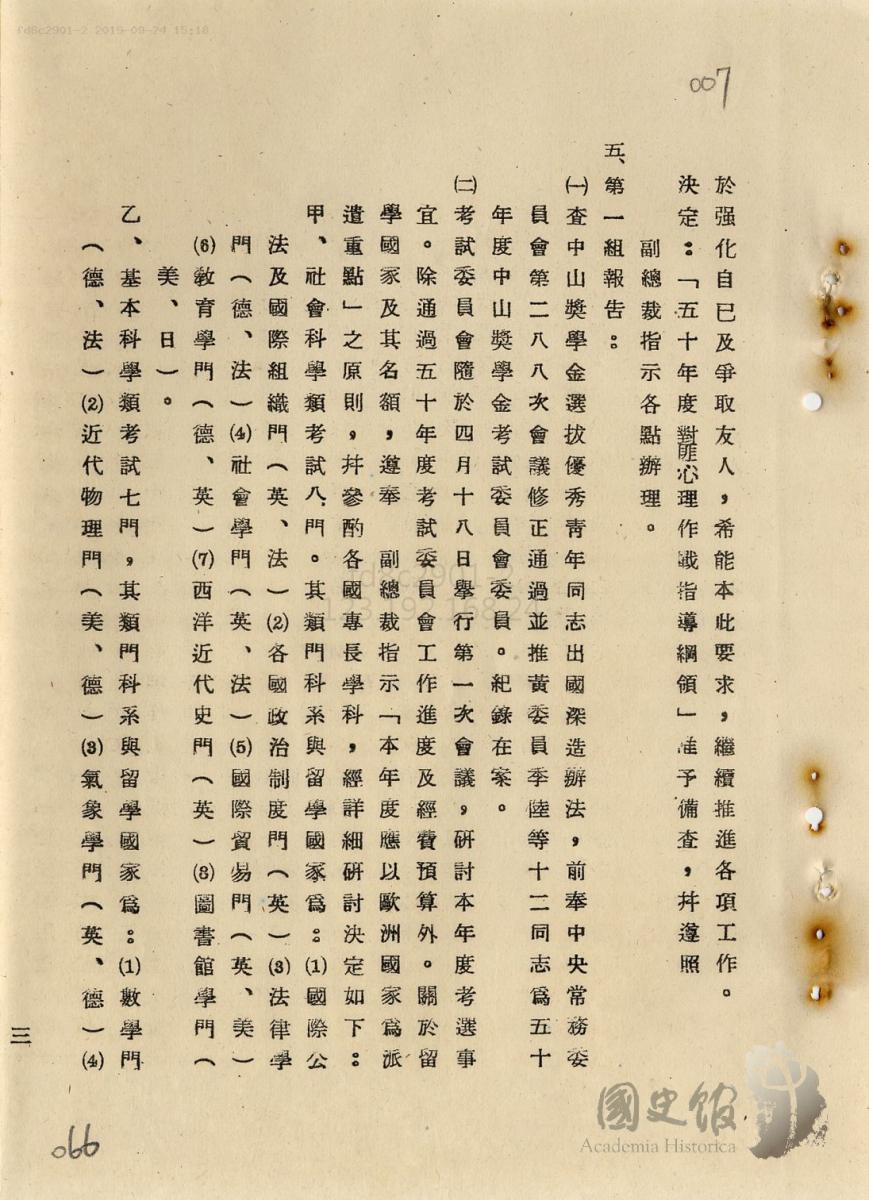 fd8c2901-2 2019-09-24 15:18
007
於强化自已及爭取友人，希能本此要求，繼續推進各項工作。
決定：「五十年度對匪心理作戰指導綱領」准予備查，幷遵照
副總裁指示各點辦理。
五、第一組報告：
㈠查中山獎學金選拔優秀靑年同志出國深造辦法，前奉中央常務委
員會第二八八次會議修正通過並推黃委員季陸等十二同志爲五十
年度中山獎學金考試委員會委員。紀錄在案。
㈡考試委員會隨於四月十八日舉行第一次會議，硏討本年度考選事
宜。除通過五十年度考試委員會工作進度及經費預算外。關於留
學國家及其名額，遵奉　副總裁指示「本年度應以歐洲國家爲派
遣重點」之原則，幷參酌各國專長學科，經詳細硏討決定如下：
甲、社會科學類考試八門。其類門科系與留學國家爲：⑴國際公
法及國際組織門（英、法）⑵各國政治制度門（英）⑶法律學
門（德、法）⑷社會學門（英、法）⑸國際貿易門（英、美）
⑹敎育學門（德、英）⑺西洋近代史門（英）⑻圖書館學門（
美、日）。
乙、基本科學類考試七門，其類門科系與留學國家爲：⑴數學門
（德、法）⑵近代物理門（美、德）⑶氣象學門（英、德）⑷
三
066
國史館
Academia Historica